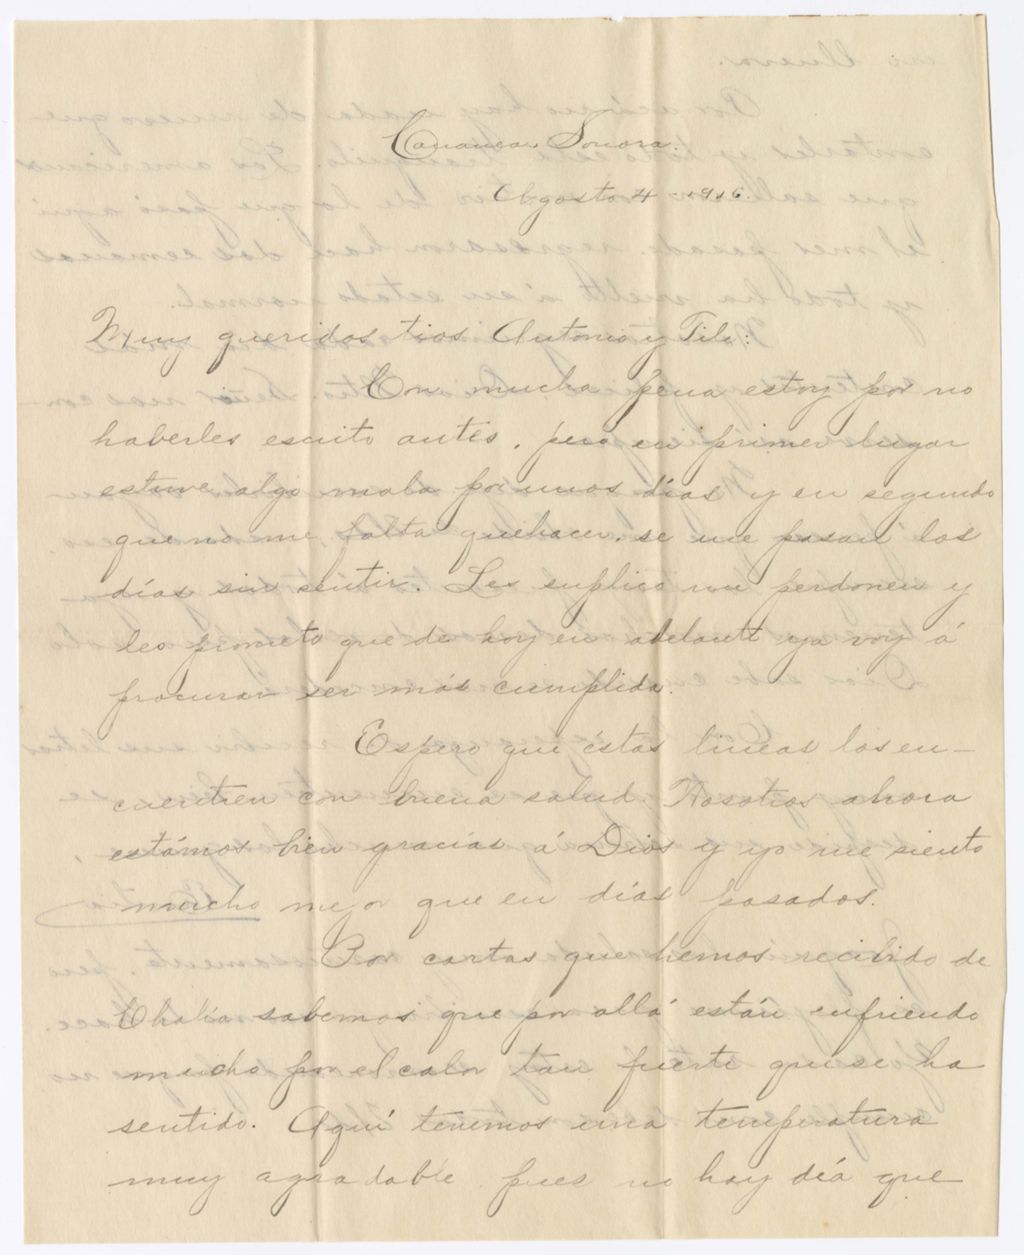 Cananea, Sonora.
Agosto 4 - 1916.
Muy queridos tios Antonio y Tili:
Con mucha pena estoy por no
haberles escrito antes, pero en primer lugar
estuve algo mala por unos días y en segundo
que no me falta quehacer, se me pasan los
días sin sentir. Les suplico me perdonen y
les prometo que de hoy en adelante ya voy á
procurar ser más cumplida.
Espero que éstas lineas los en-
cuentren con buena salud. Nosotros ahora
estámos bien gracias á Dios y yo me siento
mucho mejor que en días pasados.
Por cartas que hemos recibido de
sabemos que por allá están sufriendo
mucho por el calor tan fuerte que se ha
sentido. Aquí tenemos una temperatura
muy agradable pues no hay día que